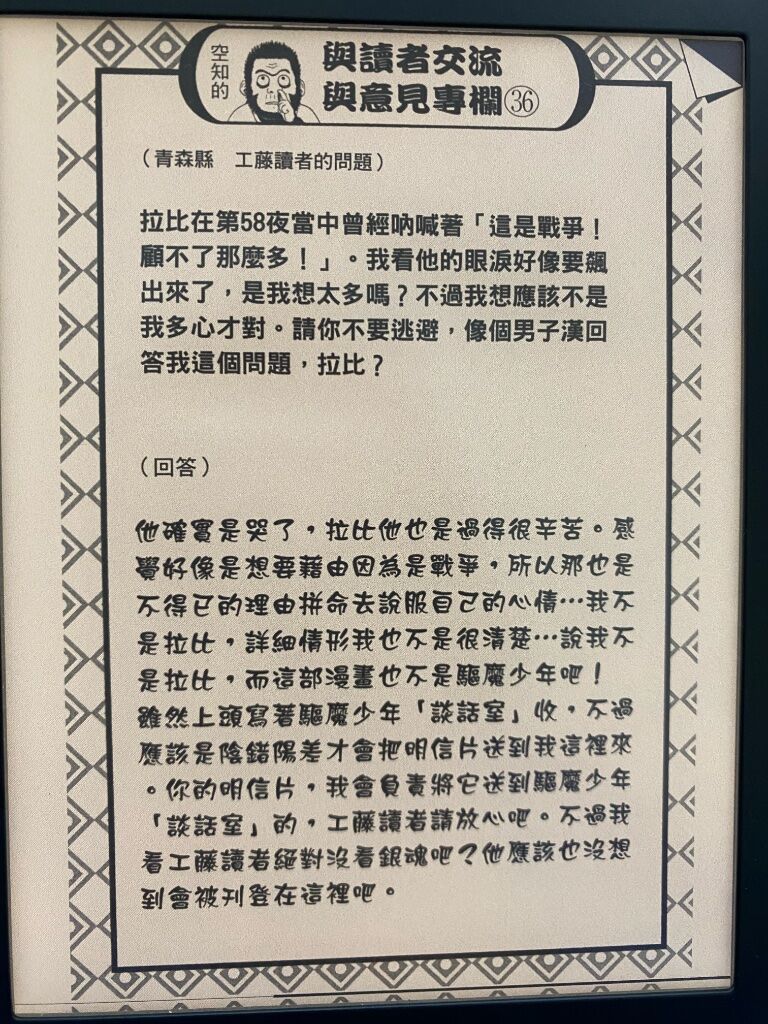 空知的
與讀者交流
與意見專欄㊱
（青森縣　工藤讀者的問題）
拉比在第58夜當中曾經吶喊著「這是戰爭！
顧不了那麼多！」。我看他的眼淚好像要飆
出來了，是我想太多嗎？不過我想應該不是
我多心才對。請你不要逃避，像個男子漢回
答我這個問題，拉比？
（回答）
他確實是哭了，拉比他也是過得很辛苦。感
覺好像是想要藉由因為是戰爭，所以那也是
不得已的理由拼命去說服自己的心情…我不
是拉比，詳細情形我也不是很清楚…說我不
是拉比，而這部漫畫也不是驅魔少年吧！
雖然上頭寫著驅魔少年「談話室」收，不過
應該是陰錯陽差才會把明信片送到我這裡來
。你的明信片，我會負責將它送到驅魔少年
「談話室」的，工藤讀者請放心吧。不過我
看工藤讀者絕對沒看銀魂吧？他應該也沒想
到會被刊登在這裡吧。